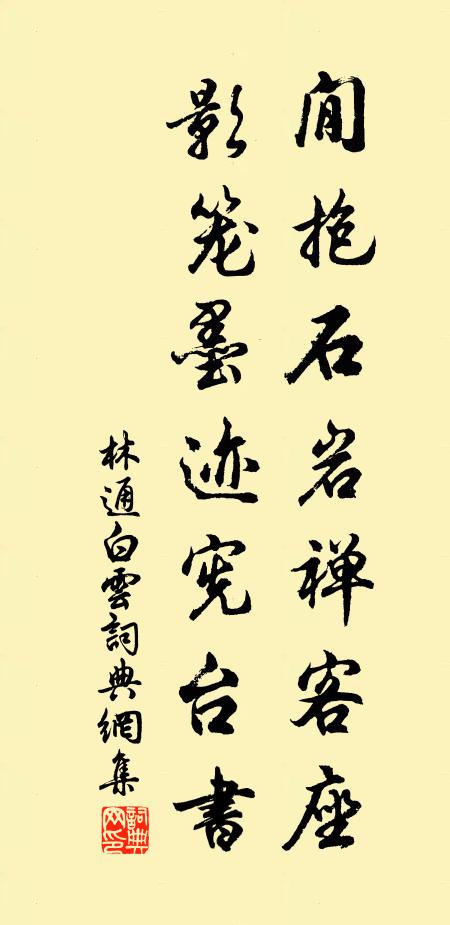 闲抱石岩禅客座
影笼墨迹宪台书
林通白雲詞典網集
詞典网印